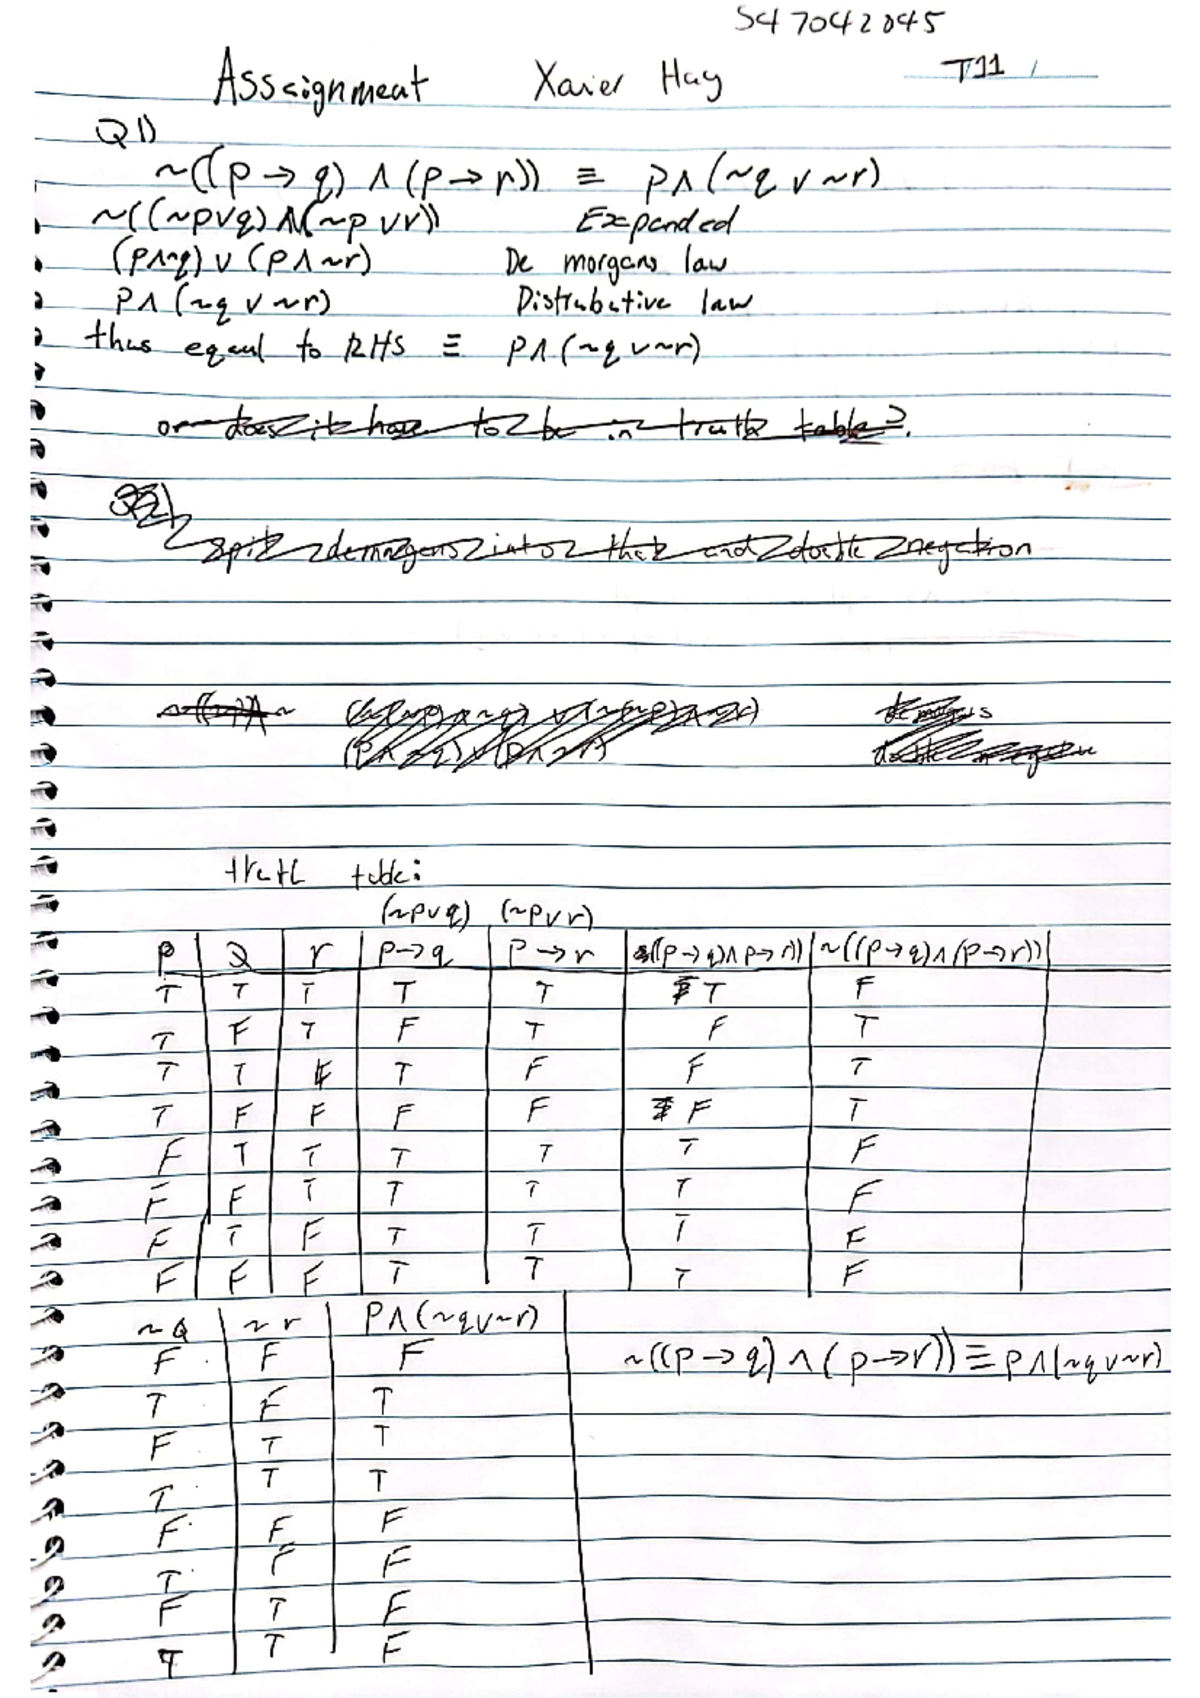 S47042045
Asssignment Xavier Hay T11
Q1)
~((p → q) ∧ (p → r)) ≡ p∧(~q ∨ ~r)
~((~p∨q) ∧(~p ∨r)) Expanded
(p∧~q) ∨ (p∧~r) De morgans law
p∧(~q ∨ ~r) Distrubative law
thus eqaul to RHS ≡ p∧(~q ∨~r)
or does it have to be in truth table?
Q2)
split demorgans into that and double negation
truth table:
(~p∨q) (~p∨r)
P Q r p→q p→r ((p→q)∧p→r)) ~((p→q)∧(p→r))
T T T T T T F
T F T F T F T
T T F T F F T
T F F F F F T
F T T T T T F
F F T T T T F
F T F T T T F
F F F T T T F
~Q ~r P∧(~q∨~r)
F F F ~((p→q) ∧ (p→r)) ≡ p∧(~q∨~r)
T F T
F T T
T T T
F F F
T F F
F T F
T T F